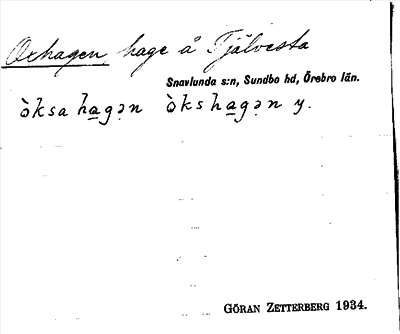 Oxhagen, hage å Tjälvesta
Snavlunda s:n, Sundbo hd, Örebro län.
òksa ha̲gən òks ha̲gən y.
GÖRAN ZETTERBERG 1934.